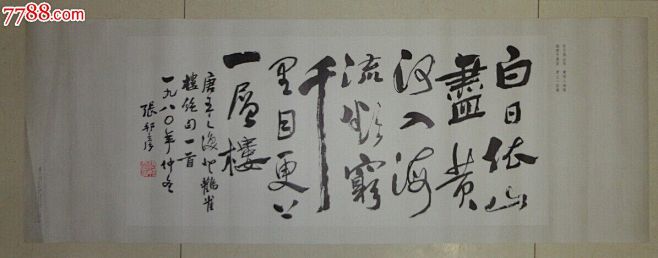 7788.com
中国收藏热线
白日依山
盡黄
河入海
流欲窮
千
里目更上
一層樓
唐王之渙登鸛雀
樓絶句一首
一九八〇年仲冬
張邦彦